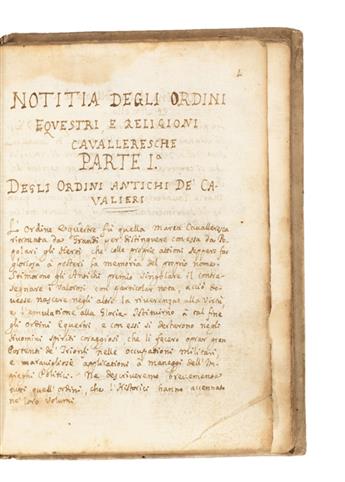 1
NOTITIA DEGLI ORDINI
EQVESTRI, E RELIGIONI
CAVALLERESCHE
PARTE I.ª
DEGLI ORDINI ANTICHI DE' CA-
VALIERI
L'Ordine Equestre fù quella Marca Cavalleresca
ritrovata da' Grandi per distinguere con essa da' Po-
polari gli Heroi che colle proprie attioni seppero far
gloriosa a' posteri la memoria del proprio nome.
Stimorono gli Antichi premio singolare il contra-
segnare i Valorosi con particolar nota, acciò do-
vesse nascere negli altri la riverenza alla Virtù
e l'emulatione alla Gloria. Istituirno a tal fine
gli ordini Equestri e con essi si destorono negli
Huomini spiriti coraggiosi, che li fecero oprar gran
Portenti de' Trionfi nelle occupationi militari,
e maravigliose applicationi a maneggi dell'Im-
pieghi Politici. Ne descriveremo brevemente
tutti quell'ordini, che l'Historici hanno accennato
ne' loro volumi